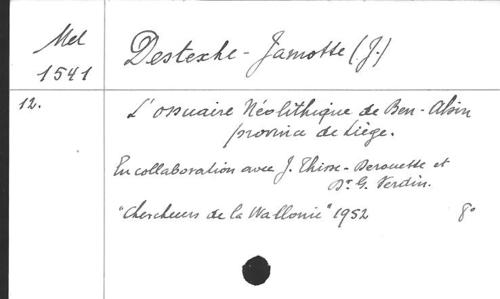 Mel
1541
Destexhe-Jamotte (J.)
12.
L'ossuaire Néolithique de Ben-Ahin
province de Liège.
En collaboration avec J. Thisse-Derouette et
Dr G. Verdin.
"Chercheurs de la Wallonie" 1952 8°